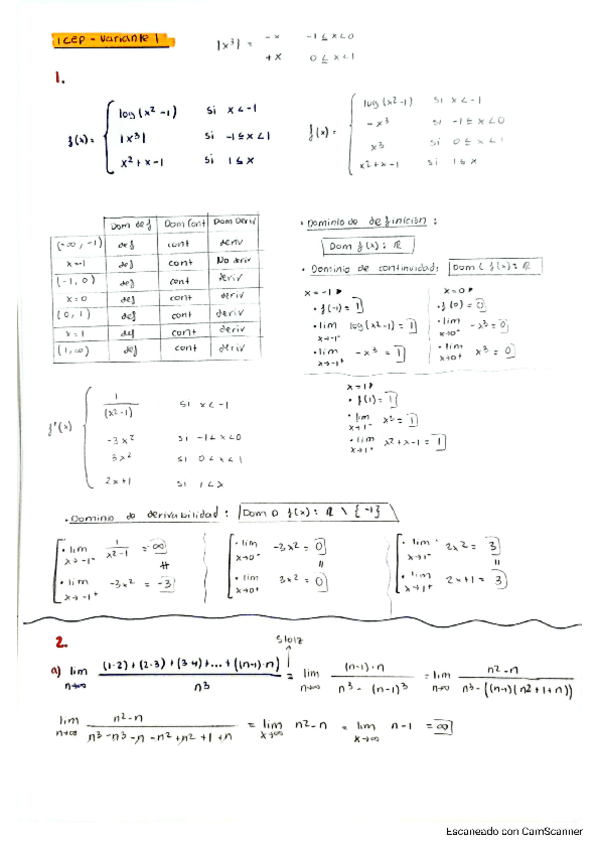 1 CEP - Variante 1
|x³| = -x -1 ≤ x < 0
+x 0 ≤ x < 1
1.
f(x) = { log(x² - 1) si x < -1
|x³| si -1 ≤ x < 1
x² + x - 1 si 1 ≤ x
f(x) = { log(x² - 1) si x < -1
-x³ si -1 ≤ x < 0
x³ si 0 ≤ x < 1
x² + x - 1 si 1 ≤ x
Dom def Dom Cont Dom Deriv
(-∞, -1) def cont deriv
x = -1 def cont No deriv
(-1, 0) def cont deriv
x = 0 def cont deriv
(0, 1) def cont deriv
x = 1 def cont deriv
(1, ∞) def cont deriv
• Dominio de definición:
Dom f(x): ℝ
• Dominio de continuidad: Dom C f(x): ℝ
x = -1
• f(-1) = 1
• lim x→-1⁻ log(x² - 1) = 1
• lim x→-1⁺ -x³ = 1
x = 0
• f(0) = 0
• lim x→0⁻ -x³ = 0
• lim x→0⁺ x³ = 0
x = 1
• f(1) = 1
• lim x→1⁻ x³ = 1
• lim x→1⁺ x² + x - 1 = 1
f'(x) { 1/(x² - 1) si x < -1
-3x² si -1 < x < 0
3x² si 0 < x < 1
2x + 1 si 1 < x
• Dominio de derivabilidad: Dom D f(x): ℝ \ {-1}
• lim x→-1⁻ 1/(x² - 1) = ∞
≠
• lim x→-1⁺ -3x² = -3
• lim x→0⁻ -3x² = 0
=
• lim x→0⁺ 3x² = 0
• lim x→1⁻ 2x² = 3
=
• lim x→1⁺ 2x + 1 = 3
2.
Stolz
a) lim n→∞ ((1·2) + (2·3) + (3·4) + ... + ((n-1)·n))/n³ = lim n→∞ ((n-1)·n)/(n³ - (n-1)³) = lim n→∞ (n² - n)/(n³ - ((n-1)(n² + 1 + n))
lim n→∞ (n² - n)/(n³ - n³ - n - n² + n² + 1 + n) = lim x→∞ n² - n = lim x→∞ n - 1 = ∞
Escaneado con CamScanner